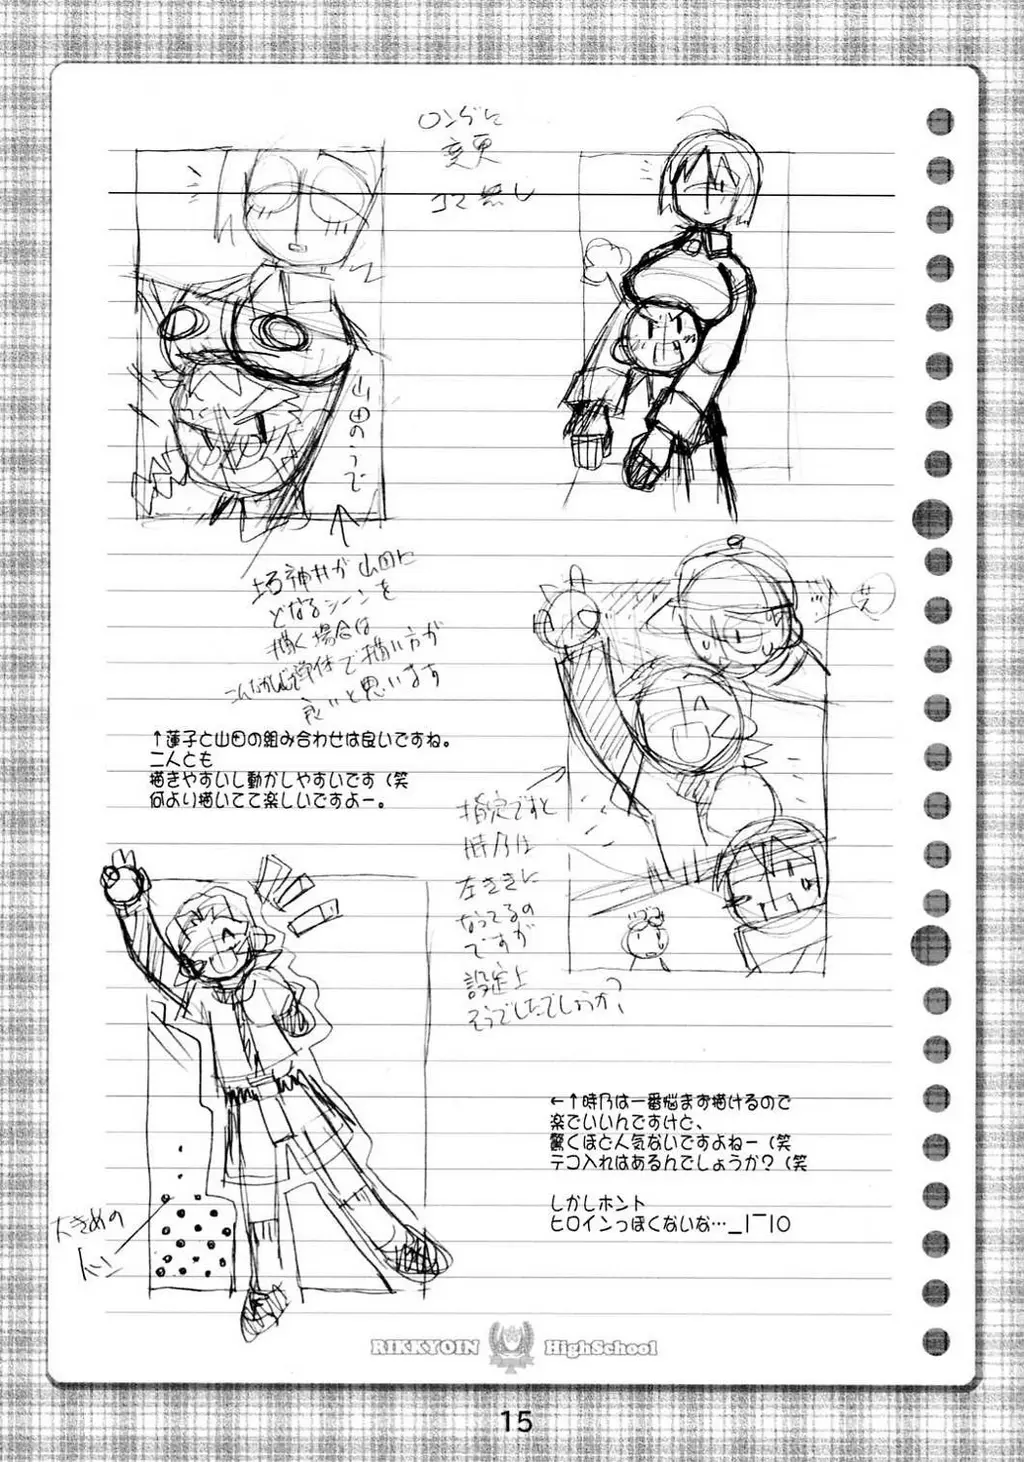 ロングに
変更
コマ無し
山田のうで
神井が山田に
どなるシーンを
描く場合は
こんなかんじの立体で描い方が
良いと思います
↑蓮子と山田の組み合わせは良いですね。
二人とも
描きやすいし動かしやすいです（笑
何より描いてて楽しいですよー。
指定ですと
時乃は
左ききに
なってるの
ですが
設定上
そうでしたでしょうか?
←↑時乃は一番悩まず描けるので
楽でいいんですけど、
驚くほど人気ないですよねー（笑
テコ入れはあるんでしょうか？（笑
しかしホント
ヒロインっぽくないな…_|￣|○
大きめの
トーン
RIKKYOIN HighSchool
15